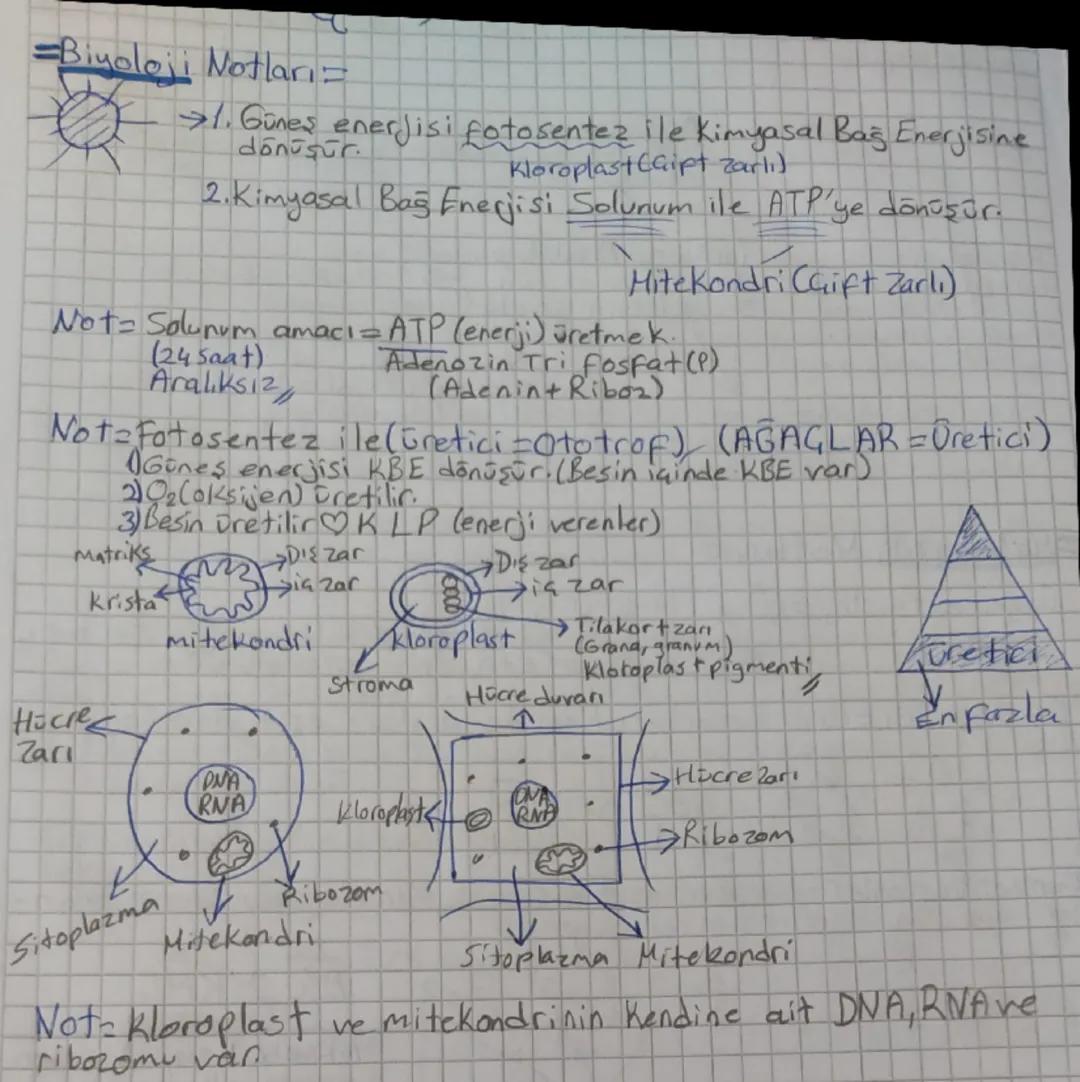 =Biyoloji Notları=
→1. Güneş enerjisi fotosentez ile Kimyasal Bağ Enerjisine
dönüşür.
Kloroplast (Çift zarlı)
2. Kimyasal Bağ Enerjisi Solunum ile ATP'ye dönüşür.
Mitekondri (Çift Zarlı)
Not= Solunum amacı = ATP (enerji) üretmek.
(24 saat) Adenozin Tri fosfat (P)
Aralıksız (Adenin + Riboz)
Not= Fotosentez ile (üretici = Ototrof) (AĞAÇLAR = Üretici)
1) Güneş enerjisi KBE dönüşür. (Besin içinde KBE var)
2) O₂ (oksijen) üretilir.
3) Besin üretilir ♡ K L P (enerji verenler)
Matriks
Dış zar
iç zar
Krista
mitekondri
Dış zar
iç zar
Tilakort zarı
(Grana, granum)
Kloroplast pigmenti
kloroplast
Stroma
üretici
En fazla
Hücre
Zarı
DNA
RNA
Ribozom
Sitoplazma
Mitekondri
Hücre duvarı
Hücre Zarı
Kloroplast
DNA
RNA
Ribozom
Sitoplazma
Mitekondri
Not= Kloroplast ve mitekondrinin Kendine ait DNA, RNA ve
ribozomu var.